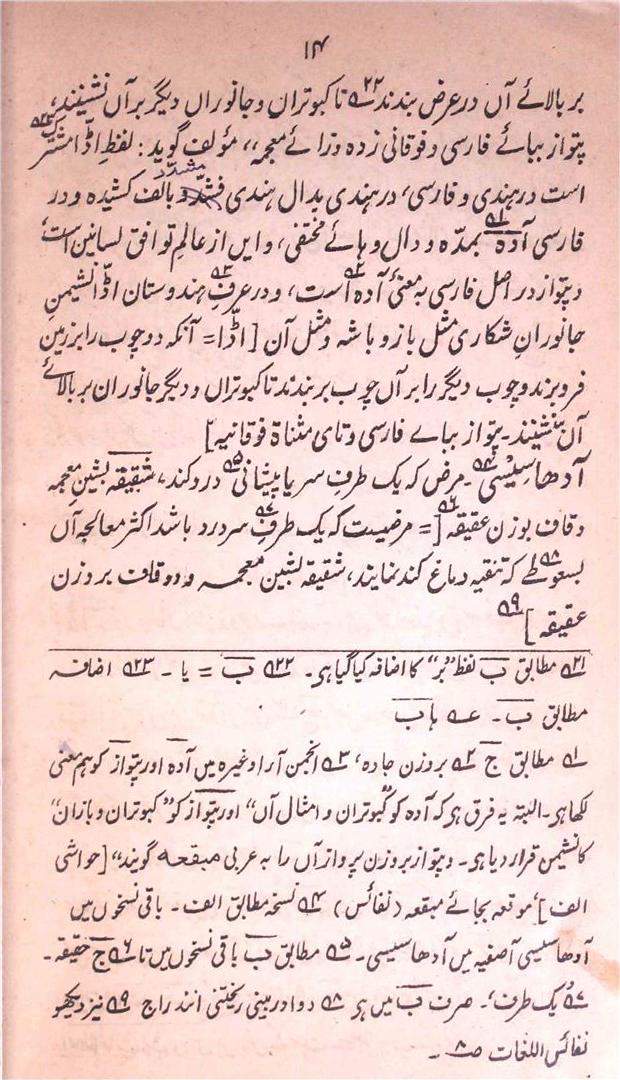 ۱۴
بر بالائے آں در عرض بندند ۲۲؎ تا کبوتراں و جانوراں دیگر برآں نشینند،
پتواز ببائے فارسی و فوقانی زدہ و زائے معجمہ،، مؤلف گوید : لفظِ اڈّا مشترک ۲۳؎
است در ہندی و فارسی، در ہندی بدال ہندی مشدّد و بالف کشیدہ و در
فارسی آدہ ۱؎ بمدّہ و دال و ہائے مختفی، و ایں از عالمِ توافق لسانین است،
و پتواز در اصل فارسی بہ معنیٔ آدہ ۲؎ است، و در عرفِ ۳؎ ہندوستان اڈّا نشیمنِ
جانورانِ شکاری مثل باز و باشہ و مثل آن [ اڈّا= آنکہ دو چوب را بر زمین
فرو برند و چوب دیگر را بر آں چوب بر بندند تا کبوتراں و دیگر جانوران بر بالائے
آں بنشینند۔ پتواز ببائے فارسی و تای مثناۃ فوقانیہ]
آدھا سیسی ۴؎۔ مرض کہ یک طرفِ سر یا پیشانی ۵؎ درد کند، شقیقہ بشینِ معجمہ
و قاف بوزن عقیقہ ۶؎ [= مرضیست کہ یک طرفِ ۷؎ سر درد باشد اکثر معالجہ آں
بسعوطے ۸؎ کہ تنقیہ دماغ کند نمایند، شقیقہ بشین معجمہ و دو قاف بر وزن
عقیقہ ] ۹؎
۲۱؎ مطابق ب لفظ ”بر“ کا اضافہ کیا گیا ہی۔ ۲۲؎ ب = یا ۔ ۲۳؎ اضافہ
مطابق ب ۔ ع؎ ہا ب
۱؎ مطابق ج ۲؎ بروزن جادہ، ۳؎ انجمن آرا وغیرہ میں آدہ اور پتواز کو ہم معنی
لکھا ہی۔ البتہ یہ فرق ہی کہ آدہ کو ”کبوتران و امثال آں“ اور پتواز کو ”کبوتران و بازان“
کا نشیمن قرار دیا ہی۔ و پتواز بروزن پرواز آں را بہ عربی میقعہ گویند“ [حواشی
الف]، موقعہ بجائے میقعہ (نفائس) ۴؎ نسخہ مطابق الف ۔ باقی نسخوں میں
آدھا سیسی آصفیہ میں آدھا سیسی۔ ۵؎ مطابق ب باقی نسخوں میں تا ۶؎ ج حقیقہ۔
۷؎ ”یک طرف“۔ صرف ب میں ہی ۸؎ دوا در بینی ریختنی انند راج ۹؎ نیز دیکھو
نفائس اللغات ص ۸۔